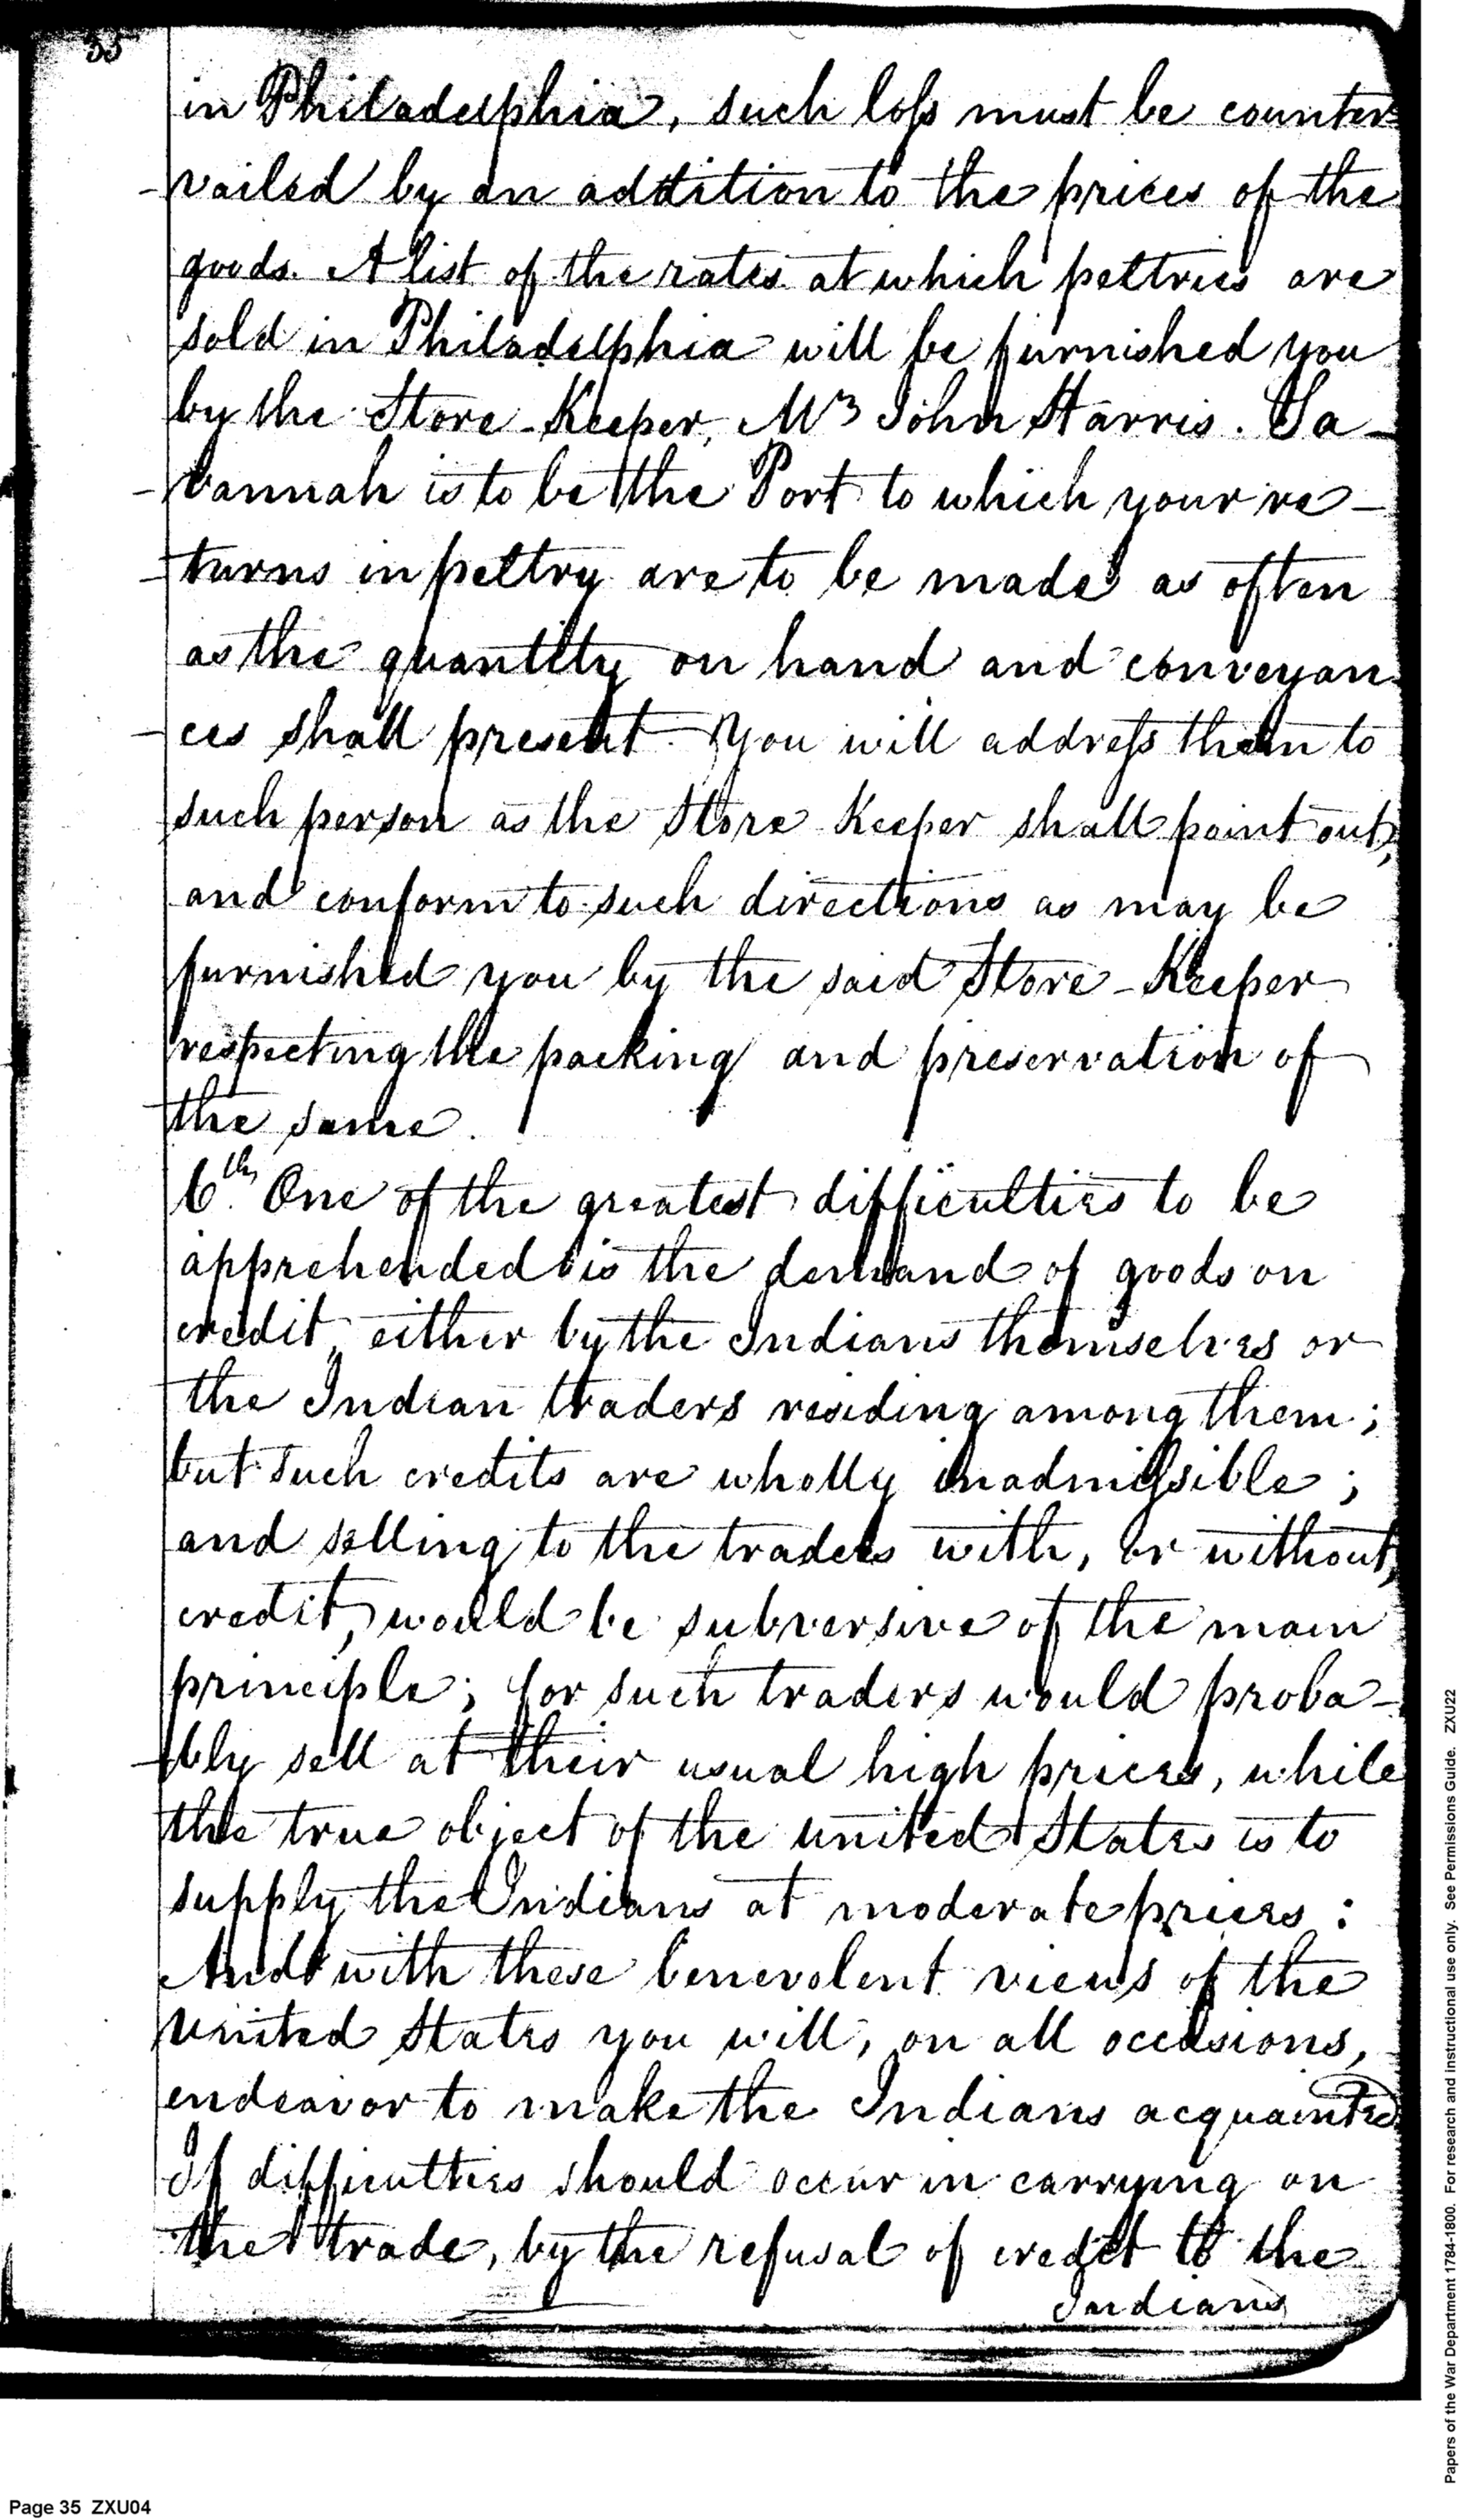 35
in Philadelphia, such loss must be counter
-vailed by an addition to the prices of the
goods. A list of the rates at which peltries are
sold in Philadelphia will be furnished you
by the Store-Keeper, Mr John Harris. Sa-
-vannah is to be the Port to which your re-
-turns in peltry are to be made as often
as the quantity on hand and conveyan-
-ces shall present. You will address them to
such person as the Store Keeper shall point out,
and conform to such directions as may be
furnished you by the said Store-Keeper
respecting the packing and preservation of
the same.
6th. One of the greatest difficulties to be
apprehended is the demand of goods on
credit, either by the Indians themselves or
the Indian traders residing among them;
but such credits are wholly inadmissible;
and selling to the traders with, or without,
credit, would be subversive of the main
principle; for such traders would proba-
-bly sell at their usual high prices, while
the true object of the united States is to
supply the Indians at moderate prices:
And with these benevolent views of the
United States you will, on all occasions,
endeavor to make the Indians acquainted
If difficulties should occur in carrying on
the trade, by the refusal of credit to the
Indians
Papers of the War Department 1784-1800. For research and instructional use only. See Permissions Guide. ZXU22
Page 35 ZXU04